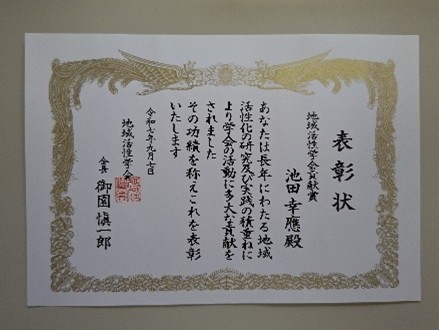 表彰状
地域活性学会貢献賞
池田幸應殿
あなたは長年にわたる地域
活性化の研究及び実践の積重ねに
より学会の活動に多大な貢献を
されました
その功績を称えこれを表彰
いたします
令和七年九月七日
地域活性学会
会長 御園愼一郎